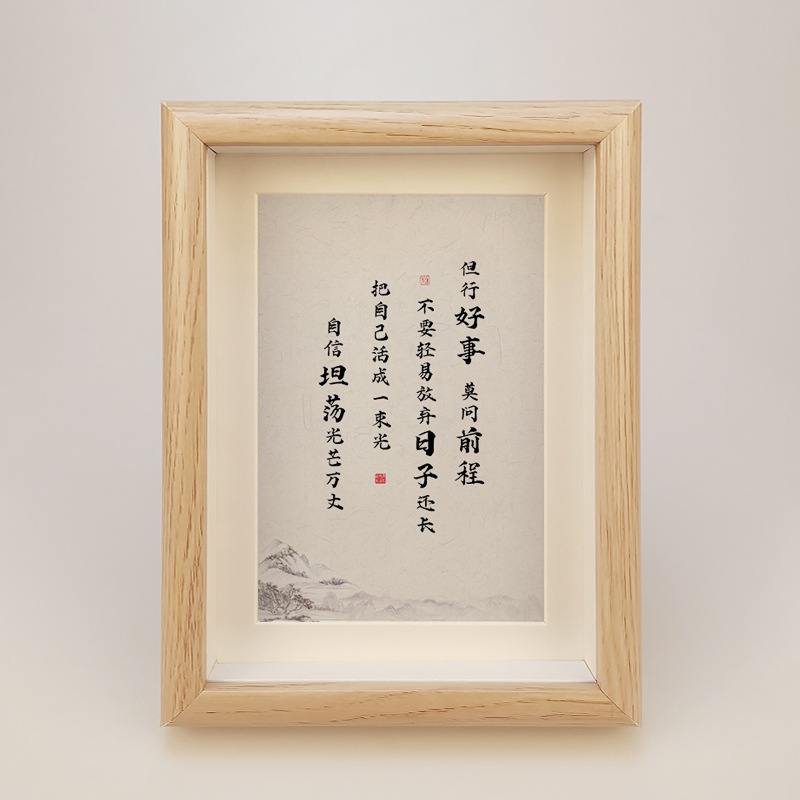 但行好事 莫问前程
不要轻易放弃日子还长
把自己活成一束光
自信坦荡光芒万丈